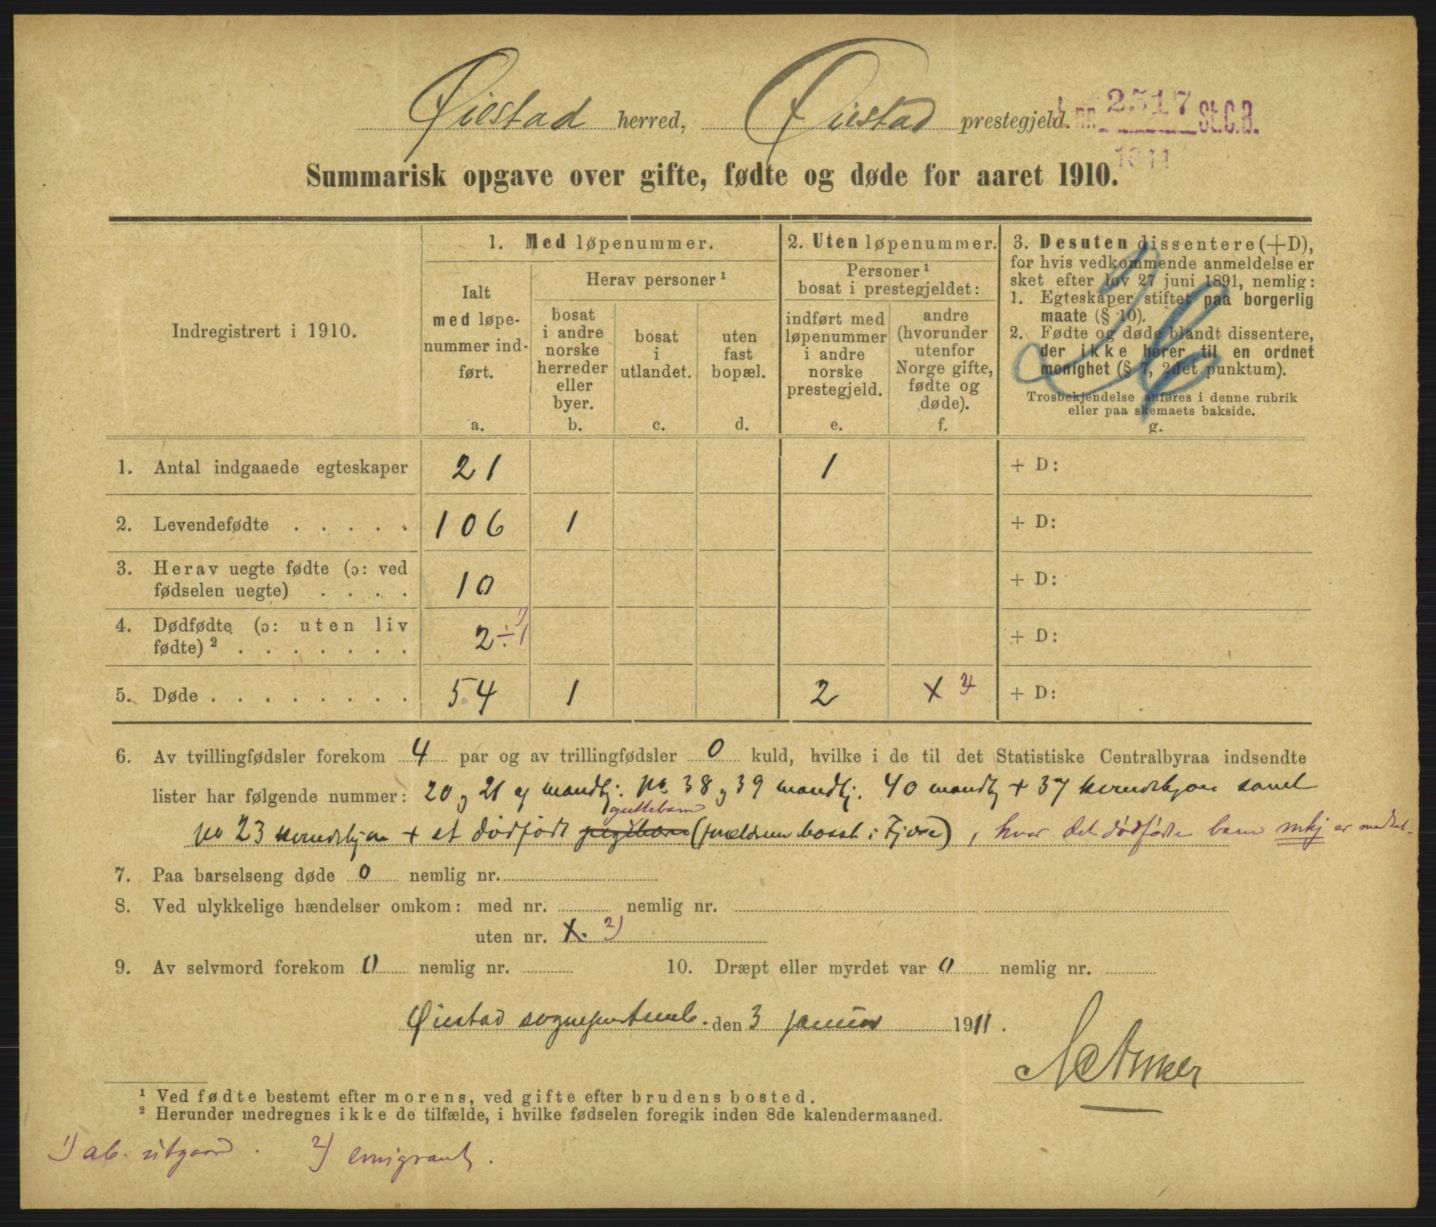 Øiestad herred, Øiestad prestegjeld.
J. nr. 2517 St.C.B.
1911
Summarisk opgave over gifte, fødte og døde for aaret 1910.
Indregistrert i 1910.
1. Med løpenummer.
Ialt med løpenummer indført.
a.
Herav personer ¹
bosat i andre norske herreder eller byer.
b.
bosat i utlandet.
c.
uten fast bopæl.
d.
2. Uten løpenummer.
Personer ¹ bosat i prestegjeldet:
indført med løpenummer i andre norske prestegjeld.
e.
andre (hvorunder utenfor Norge gifte, fødte og døde).
f.
3. Desuten dissentere (+D),
for hvis vedkommende anmeldelse er
sket efter lov 27 juni 1891, nemlig:
1. Egteskaper stiftet paa borgerlig
maate (§ 10).
2. Fødte og døde blandt dissentere,
der ikke hører til en ordnet
menighet (§ 7, 2det punktum).
Trosbekjendelse anføres i denne rubrik
eller paa skemaets bakside.
g.
1. Antal indgaaede egteskaper 21 1 + D:
2. Levendefødte . . . . . 106 1 + D:
3. Herav uegte fødte (ɔ: ved
fødselen uegte) . . . . 10 + D:
4. Dødfødte (ɔ: uten liv
fødte) ² . . . . . . . 2 ÷ 1 ¹) + D:
5. Døde . . . . . . . . 54 1 2 x ²) + D:
6. Av tvillingfødsler forekom 4 par og av trillingfødsler 0 kuld, hvilke i de til det Statistiske Centralbyraa indsendte
lister har følgende nummer: 20 og 21 mandkj. no. 38 og 39 mandkj. 40 mandkj + 37 kvindekjøn samt
guttebarn
no 23 kvindekjøn + et dødfødt pigebarn (forældrene bosat i Fjære), hvor det dødfødte barn mkj er medtat.
7. Paa barselseng døde 0 nemlig nr.
8. Ved ulykkelige hændelser omkom: med nr. nemlig nr.
uten nr. X. ²)
9. Av selvmord forekom 0 nemlig nr. 10. Dræpt eller myrdet var 0 nemlig nr.
Øiestad sogneprestemb. den 3 januar 1911.
¹ Ved fødte bestemt efter morens, ved gifte efter brudens bosted.
² Herunder medregnes ikke de tilfælde, i hvilke fødselen foregik inden 8de kalendermaaned.
¹) ab. utgaard. ²) emigrant.